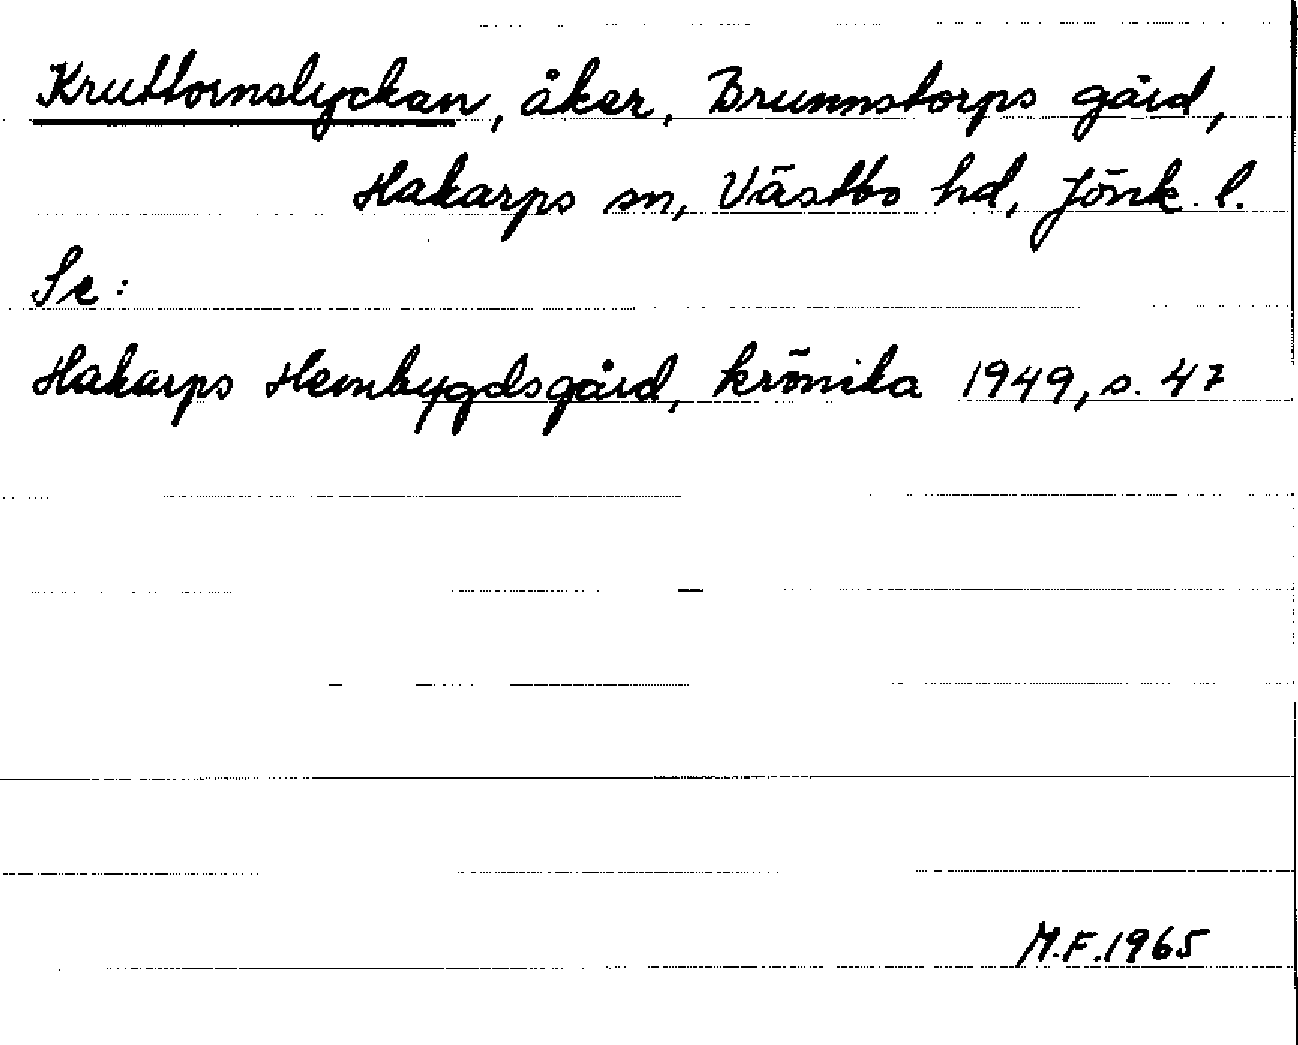 Kruttornslyckan, åker, Brunnstorps gård,
Hakarps sn, Västbo hd, Jönk. l.
Se:
Hakarps Hembygdsgård, krönika 1949, s. 47
M.F. 1965